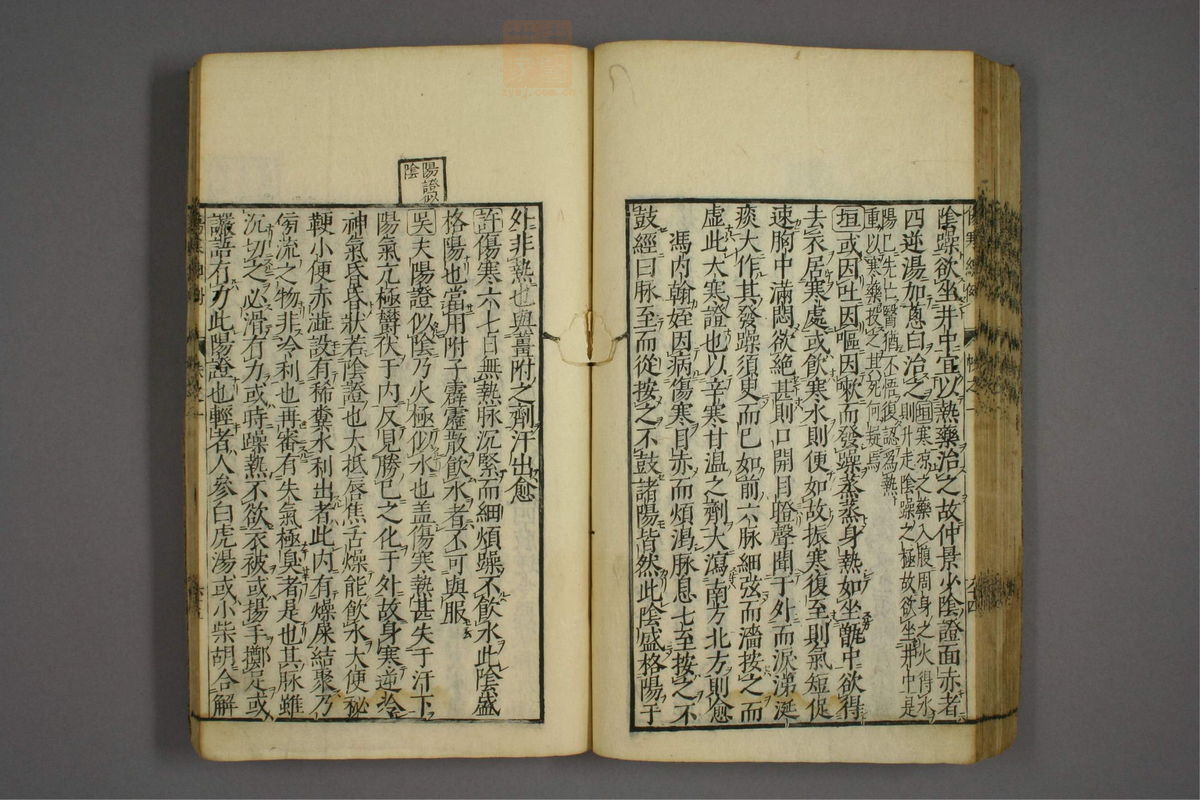 陰躁欲坐井中宜以熱藥治之故仲景少陰證面赤者
四逆湯加蔥白治之
垣寒凉之藥入腹周身之火得水
則升走陰躁之極故欲坐井中是
陽已先亡醫猶不悟復認為熱
重以寒藥投之其死何疑焉
垣或因吐因嘔因嗽而發躁蒸蒸身熱如坐甑中欲得
去衣居寒處或飲寒水則便如故振寒復至則氣短促
速胸中滿悶欲絕甚則口開目瞪聲聞于外而淚涕涎
痰大作其發躁須臾而已如前六脉細弦而濇按之而
虛此大寒證也以辛寒甘温之劑大瀉南方北方則愈
馮内翰姪因病傷寒目赤而煩渴脉息七至按之不
鼓經曰脉至而從按之不鼓諸陽皆然此陰盛格陽于
外非熱也與薑附之劑汗出愈
許傷寒六七日無熱脉沉緊而細煩躁不飲水此陰盛
格陽也當用附子霹靂散飲水者不可與服
陽證似
陰
吳夫陽證似陰乃火極似水也盖傷寒熱甚失于汗下
陽氣亢極欝伏于内反見勝已之化于外故身寒逆冷
神氣昏昏狀若陰證也大抵唇焦舌燥能飲水大便秘
鞕小便赤澁設有稀糞水利出者此内有燥屎結聚乃
傍流之物非冷利也再審有失氣極臭者是也其脉雖
沉切之必滑有力或時躁熱不欲衣被或揚手擲足或
譫語有力此陽證也輕者人參白虎湯或小柴胡合解